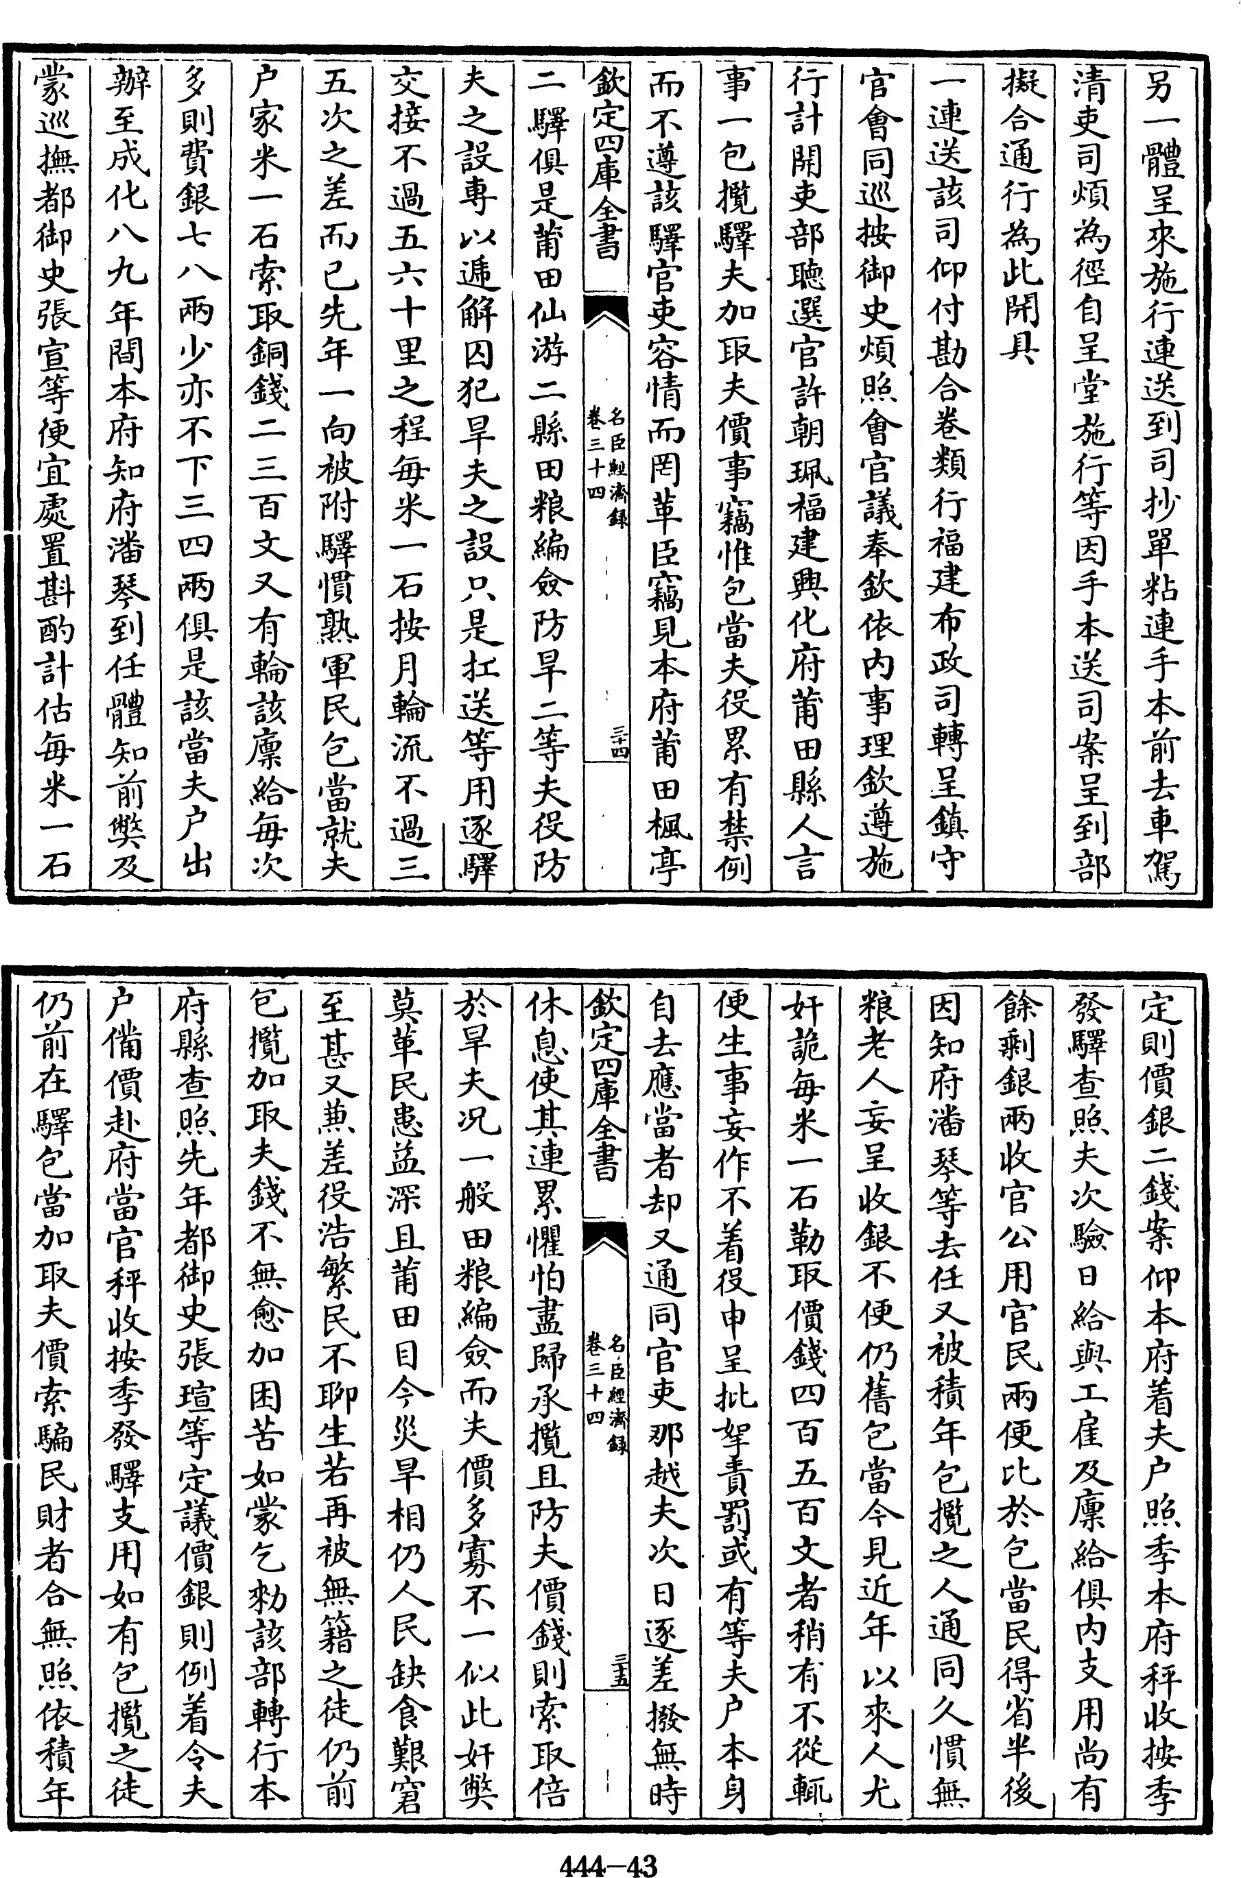 另一體呈來施行連送到司抄單粘連手本前去車駕
清吏司煩為徑自呈堂施行等因手本送司案呈到部
擬合通行為此開具
一連送該司仰付勘合卷類行福建布政司轉呈鎮守
官會同巡按御史煩照會官議奉欽依内事理欽遵施
行計開吏部聽選官許朝珮福建興化府莆田縣人言
事一包攬驛夫加取夫價事竊惟包當夫役累有禁例
而不遵該驛官吏容情而罔革臣竊見本府莆田楓亭
欽定四庫全書
名臣經濟録
卷三十四
三十四
二驛俱是莆田仙游二縣田粮編僉防旱二等夫役防
夫之設專以遞解囚犯旱夫之設只是扛送等用逐驛
交接不過五六十里之程每米一石按月輪流不過三
五次之差而已先年一向被附驛慣熟軍民包當就夫
户家米一石索取銅錢二三百文又有輪該廪給每次
多則費銀七八兩少亦不下三四兩俱是該當夫户出
辦至成化八九年間本府知府潘琴到任體知前弊及
蒙巡撫都御史張宣等便宜處置斟酌計估每米一石
定則價銀二錢案仰本府着夫户照季本府秤收按季
發驛查照夫次驗日給與工雇及廪給俱内支用尚有
餘剩銀兩收官公用官民兩便比於包當民得省半後
因知府潘琴等去任又被積年包攬之人通同久慣無
粮老人妄呈收銀不便仍舊包當今見近年以來人尤
奸詭每米一石勒取價錢四百五百文者稍有不從輒
便生事妄作不着役申呈批拏責罰或有等夫户本身
自去應當者却又通同官吏那越夫次日逐差撥無時
欽定四庫全書
名臣經濟録
卷三十四
三十五
休息使其連累懼怕盡歸承攬且防夫價錢則索取倍
於旱夫况一般田粮編僉而夫價多寡不一似此奸弊
莫革民患益深且莆田目今災旱相仍人民缺食艱窘
至甚又兼差役浩繁民不聊生若再被無籍之徒仍前
包攬加取夫錢不無愈加困苦如蒙乞勅該部轉行本
府縣查照先年都御史張瑄等定議價銀則例着令夫
户備價赴府當官秤收按季發驛支用如有包攬之徒
仍前在驛包當加取夫價索騙民財者合無照依積年
444-43